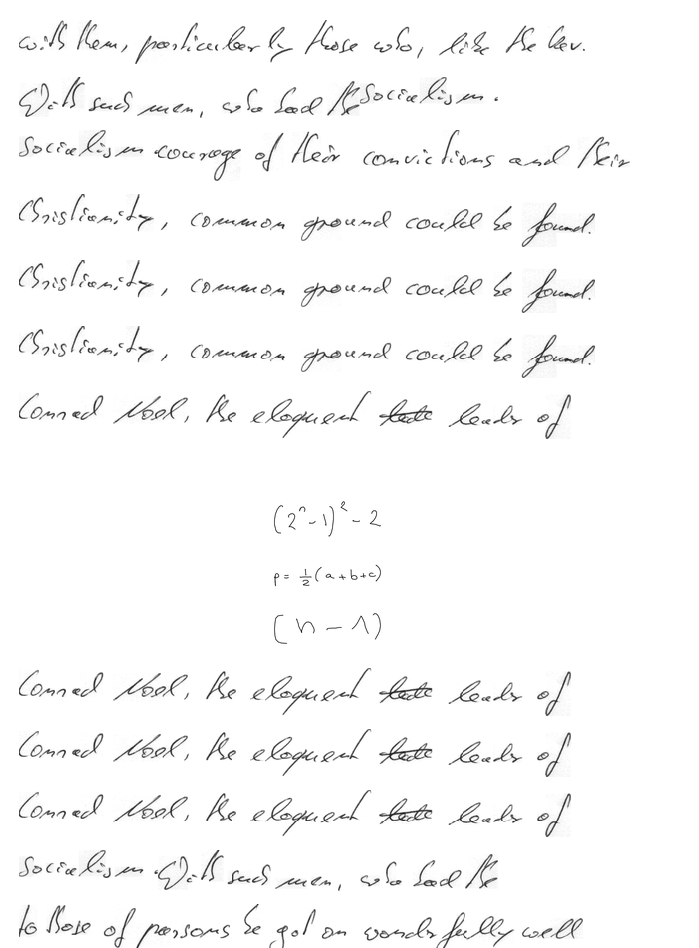 with them, particularly those who, like the Rev.
With such men, who had the Socialism.
Socialism courage of their convictions and their
Christianity, common ground could be found.
Christianity, common ground could be found.
Christianity, common ground could be found.
Conrad Noel, the eloquent leader of
(2^n-1)^2-2
p = 1/2(a+b+c)
(n-1)
Conrad Noel, the eloquent leader of
Conrad Noel, the eloquent leader of
Conrad Noel, the eloquent leader of
Socialism. With such men, who had the
to those of parsons he got on wonderfully well